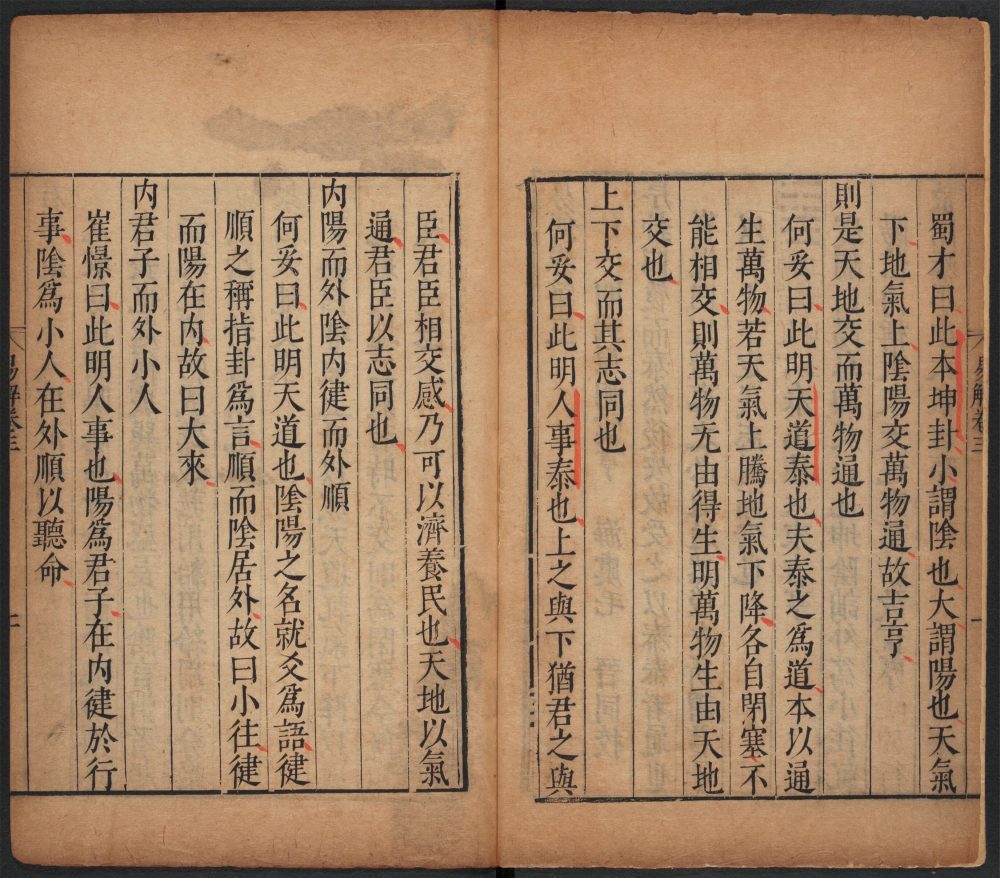 易解卷三
一
蜀才曰此本坤卦小謂陰也大謂陽也天氣
下地氣上陰陽交萬物通故吉亨
則是天地交而萬物通也
何妥曰此明天道泰也夫泰之為道本以通
生萬物若天氣上騰地氣下降各自閉塞不
能相交則萬物无由得生明萬物生由天地
交也
上下交而其志同也
何妥曰此明人事泰也上之與下猶君之與
臣君臣相交感乃可以濟養民也天地以氣
通君臣以志同也
内陽而外陰内健而外順
何妥曰此明天道也陰陽之名就爻爲語健
順之稱指卦爲言順而陰居外故曰小往健
而陽在内故曰大來
内君子而外小人
崔憬曰此明人事也陽爲君子在内健於行
事陰爲小人在外順以聽命
易解卷三
二